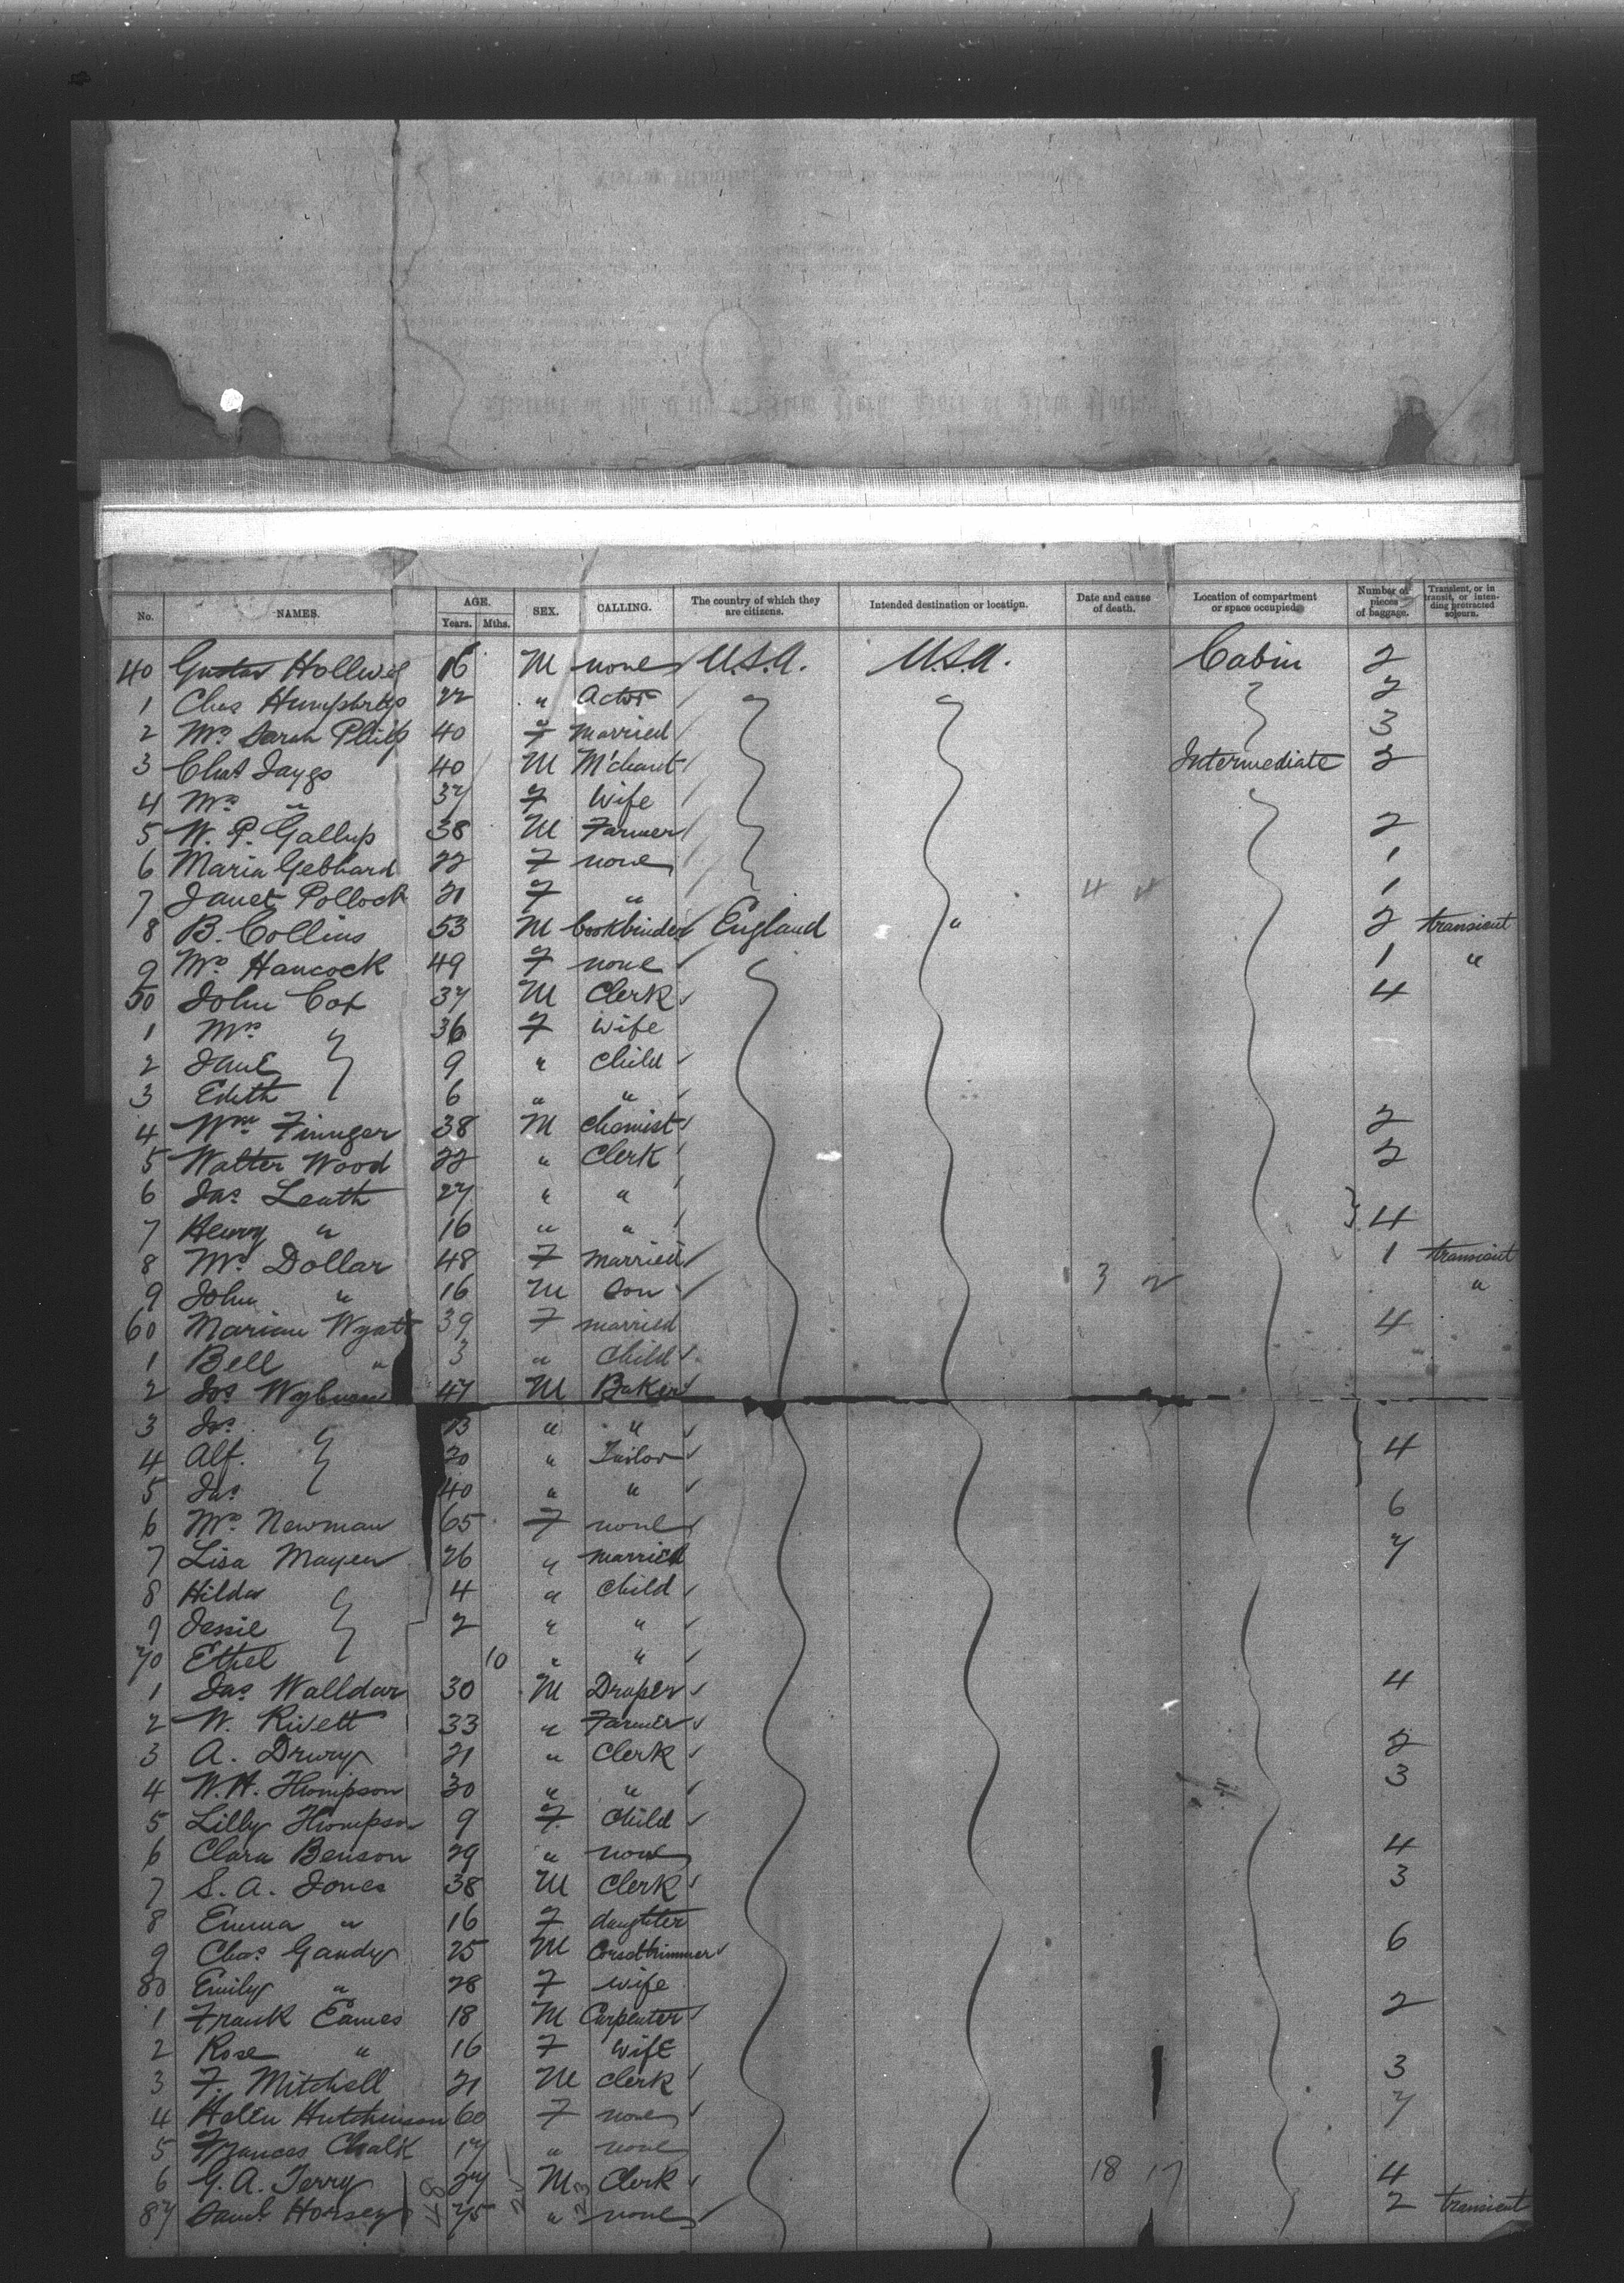 No. NAMES. AGE. Years. Mths. SEX. CALLING. The country of which they are citizens. Intended destination or location. Date and cause of death. Location of compartment or space occupied. Number of pieces of baggage. Transient, or in transit, or intending protracted sojourn.
40 Gustav Hollweg 16 M none U.S.A. U.S.A. Cabin 2
1 Chas Humphrys 22 " Actor 2
2 Mrs Sarah Philp 40 F married 3
3 Chas Jaygs 40 M M'chant Intermediate 2
4 Mrs " 37 F Wife
5 W. P. Gallup 38 M Farmer 2
6 Maria Gebhard 22 F none 1
7 Janet Pollock 21 F " 4 4 1
8 B. Collins 53 M bookbinder England " 2 transient
9 Mrs Hancock 49 F none 1 "
50 John Cox 37 M Clerk 4
1 Mrs 36 F Wife
2 Jane 9 " Child
3 Edith 6 " "
4 Wm Finnger 38 M Chemist 2
5 Walter Wood 22 " Clerk 2
6 Jas Leath 27 " "
7 Henry " 16 " " 4
8 Mrs Dollar 48 F married 1 transient
9 John " 16 M Son 3 2 "
60 Marian Wyatt 39 F married 4
1 Bell " 3 " Child
2 Jos 47 M Baker
3 Jos 13 " "
4 Alf. 20 " Tailor 4
5 Jas 40 " "
6 Mrs Newman 65 F none 6
7 Lisa Mayer 26 " married 7
8 Hilda 4 " Child
9 Jessie 2 " "
70 Ethel 10 " "
1 Jas Walldar 30 M Draper 4
2 W. Rivett 33 " Farmer
3 A. Drury 21 " Clerk 2
4 W. H. Thompson 30 " " 3
5 Lilly Thompson 9 F Child
6 Clara Benson 29 " none 4
7 S. A. Jones 38 M Clerk 3
8 Emma " 16 F daughter
9 Chas Gandy 25 M Corsettrimmer 6
80 Emily " 28 F wife
1 Frank Eames 18 M Carpenter 2
2 Rose " 16 F Wife
3 F. Mitchell 21 M Clerk 3
4 Helen Hutchinson 60 F none 7
5 Frances Chalk 17 " none
6 G. A. Terry 27 M Clerk 18 17 4
87 Saml Horsey 75 " none 2 transient